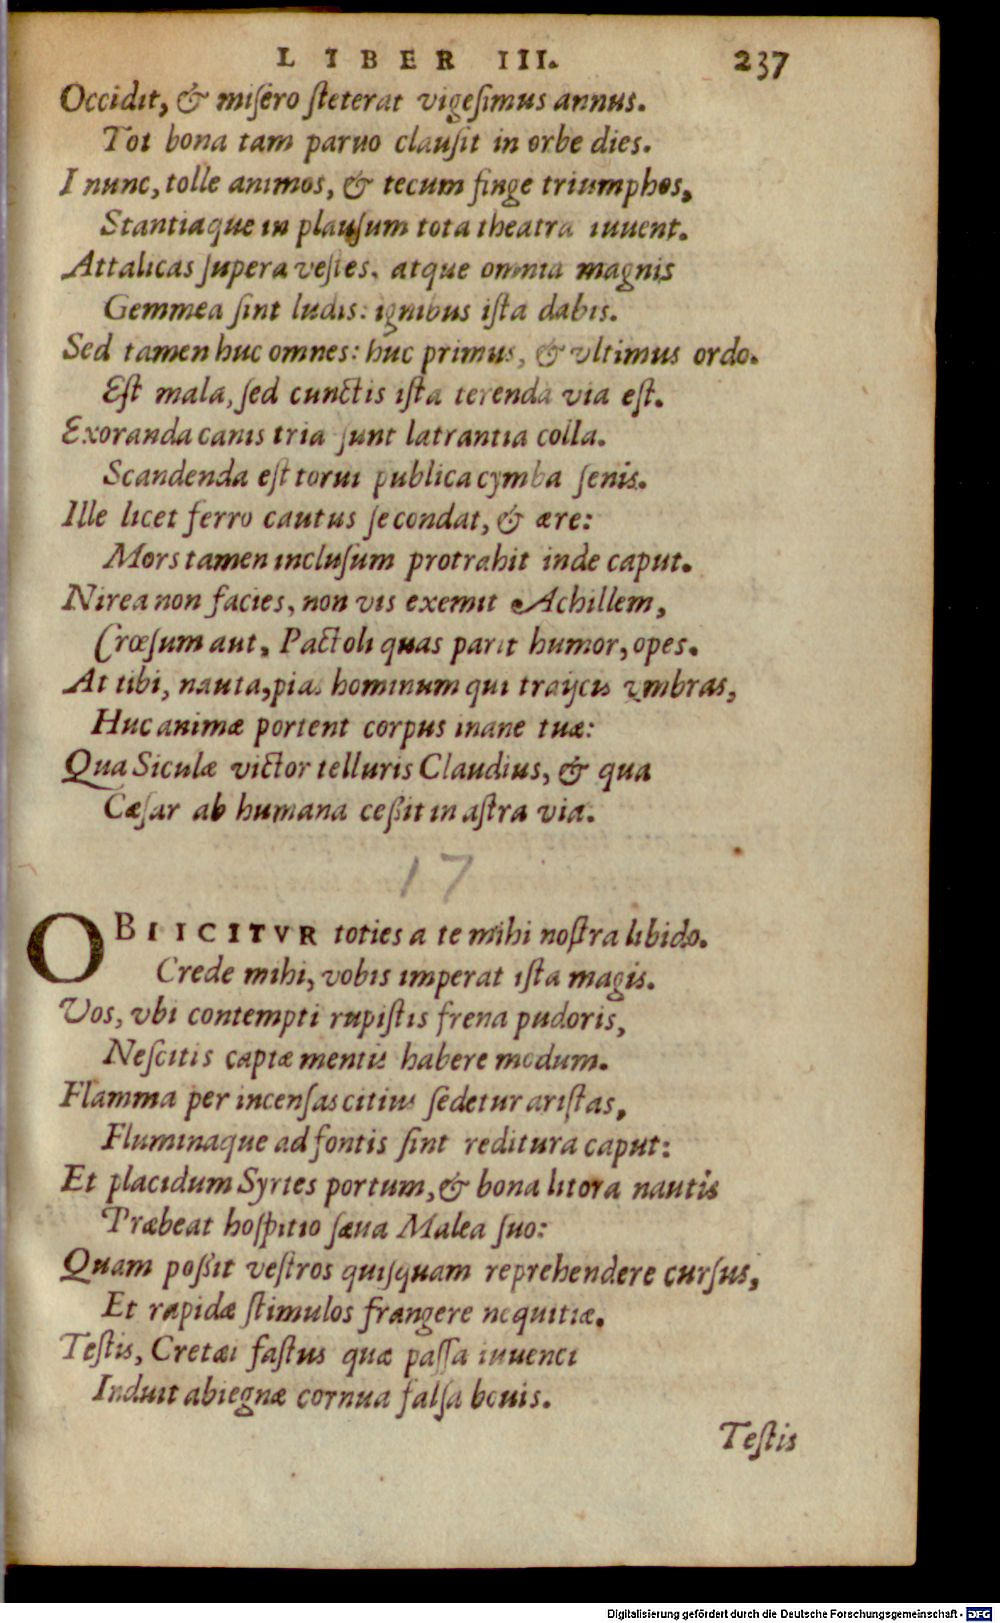 LIBER III. 237
Occidit, & misero steterat vigesimus annus.
Tot bona tam paruo clausit in orbe dies.
I nunc, tolle animos, & tecum finge triumphos,
Stantiaque in plausum tota theatra iuuent.
Attalicas supera vestes, atque omnia magnis
Gemmea sint ludis: ignibus ista dabis.
Sed tamen huc omnes: huc primus, & vltimus ordo.
Est mala, sed cunctis ista terenda via est.
Exoranda canis tria sunt latrantia colla.
Scandenda est torui publica cymba senis.
Ille licet ferro cautus se condat, & ære:
Mors tamen inclusum protrahit inde caput.
Nirea non facies, non vis exemit Achillem,
Crœsum aut, Pactoli quas parit humor, opes.
At tibi, nauta, pias hominum qui traijcis vmbras,
Huc animæ portent corpus inane tuæ:
Qua Siculæ victor telluris Claudius, & qua
Cæsar ab humana cessit in astra via.
17
OBIICITVR toties a te mihi nostra libido.
Crede mihi, vobis imperat ista magis.
Vos, vbi contempti rupistis frena pudoris,
Nescitis captæ mentis habere modum.
Flamma per incensas citius sedetur aristas,
Fluminaque ad fontis sint reditura caput:
Et placidum Syrtes portum, & bona litora nautis
Præbeat hospitio sæua Malea suo:
Quam possit vestros quisquam reprehendere cursus,
Et rapidæ stimulos frangere nequitiæ.
Testis, Cretæi fastus quæ passa iuuenci
Induit abiegnæ cornua falsa bouis.
Testis
Digitalisierung gefördert durch die Deutsche Forschungsgemeinschaft - DFG